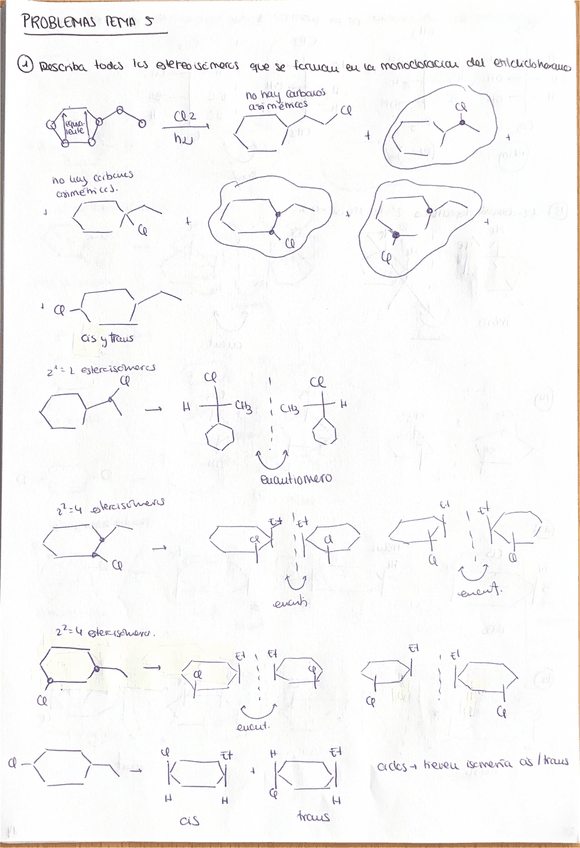 PROBLEMAS TEMA 5
① Describa todos los estereoisómeros que se forman en la monocloración del etilciclohexano
no hay carbonos
asimétricos
Cl2
hν
Cl
Cl
+
+
no hay carbonos
asimétricos.
+
Cl
+
Cl
+
Cl
+
+ Cl
cis y trans
2¹=2 estereoisómeros
Cl
Cl
H
CH3
Cl
CH3
H
enantiómero
2²=4 estereoisómeros
Cl
Cl
Et
Et
Cl
enant.
Et
Et
Cl
Cl
enant.
2²=4 estereoisómeros.
Cl
Cl
Et
Et
Cl
enant.
Et
Et
Cl
Cl
Cl
Cl
Et
H
H
cis
+
H
Et
Cl
H
trans
ciclos → tienen isomería cis/trans